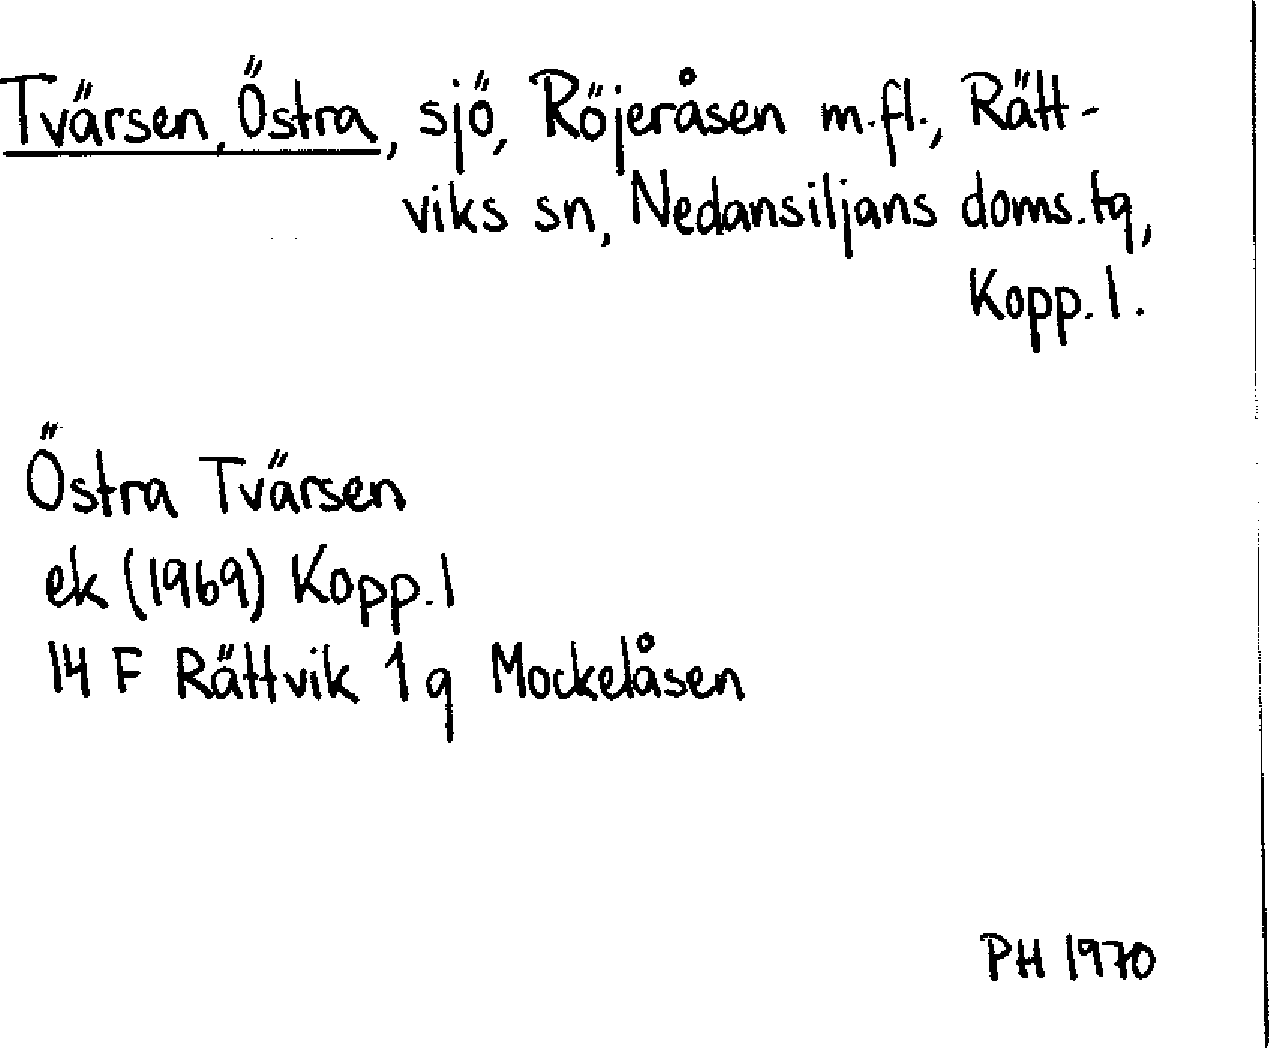 Tvärsen, Östra, sjö, Röjeråsen m.fl., Rätt-
viks sn, Nedansiljans doms.tg,
Kopp. l.
Östra Tvärsen
ek (1969) Kopp. l
14 F Rättvik 1 g Mockelåsen
PH 1970